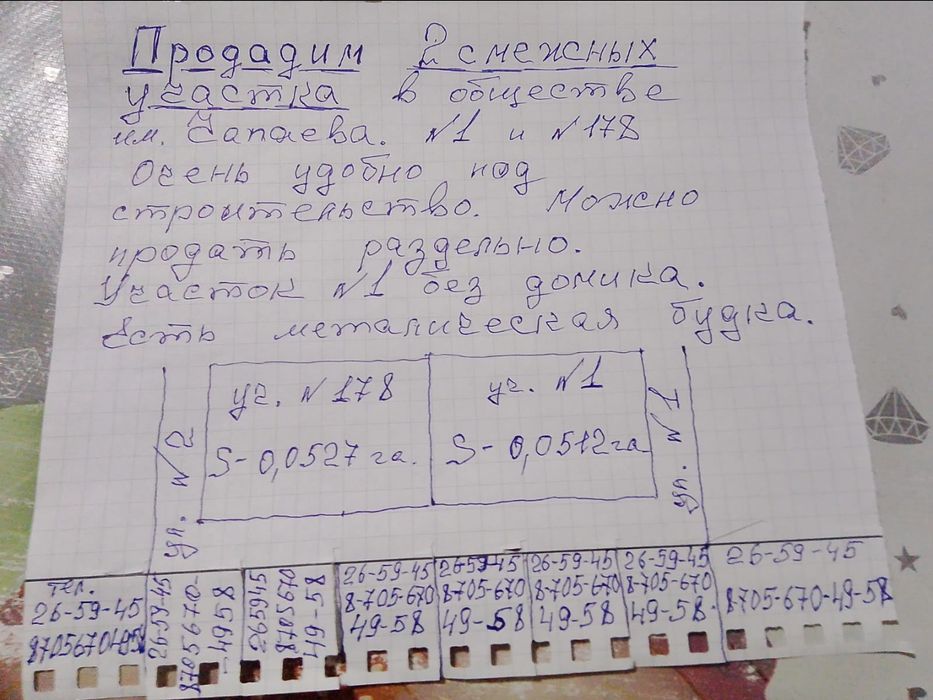 Продадим 2 смежных
участка в обществе
им. Чапаева. №1 и №178
Очень удобно под
строительство. Можно
продать раздельно.
Участок №1 без домика.
Есть металическая будка.
уч. №178
S-0,0527 га.
уч. №1
S-0,0512 га
ул. №2
ул. №1
тел.
26-59-45
87056704958
26-59-45
8705670-
-4958
265945
8705670
49-58
26-59-45
8-705-670
49-58
26-59-45
8705-670
49-58
26-59-45
8-705-670
49-58
26-59-45
8-705-670
49-58.
26-59-45
8705-670-49-58